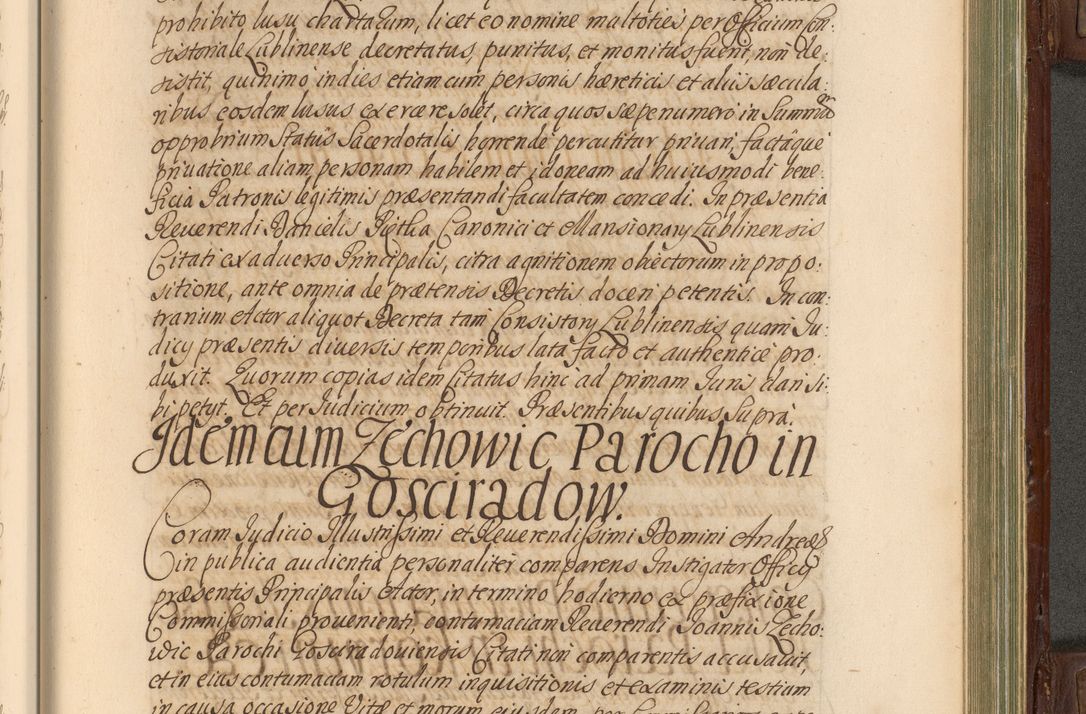 prohibito lusu chartarum, licet eo nomine multoties per Officium Con-
sistoriale Lublinense decretatus, punitus, et monitus fuerit, non de-
sistit, quinimo indies etiam cum personis hæreticis et aliis sæcula-
ribus eosdem lusus exercere solet, circa quos sæpenumero in summam
opprobrium Status Sacerdotalis horrende percutitur privari, factaque
privatione aliam personam habilem et idoneam ad huiusmodi bene-
ficia Patronis legitimis præsentandi facultatem concedi. In præsentia
Reverendi Danielis Rotha Canonici et Mansionarij Lublinensis
Citati ex adverso Principalis, citra agnitionem obiectorum in propo-
sitione, ante omnia de prætensis Decretis doceri petentis. In con-
trarium Actor aliquot Decreta tam Consistorij Lublinensis quam Iu-
dicij præsentis diversis temporibus lata facto et authentice pro-
duxit. Quorum copias idem Citatus hinc ad primam Iuris dari si-
bi petyt. Et per Iudicium obtinuit. Præsentibus quibus supra.
Idem cum Zechowic Parocho in
Gosciradow.
Coram Iudicio Illustrissimi et Reverendissimi Domini Andreæ
in publica audientia personaliter comparens Instigator Officij
præsentis Principalis Actor, in termino hodierno ex præfixione
Commissoriali provenienti, contumaciam Reverendi Ioannis Zecho-
wic Parochi Gosciradoviensis Citati non comparentis accusavit,
et in eius contumaciam rotulum inquisitionis et examinis testium
in causa occasione Vitæ et morum eiusdem, per